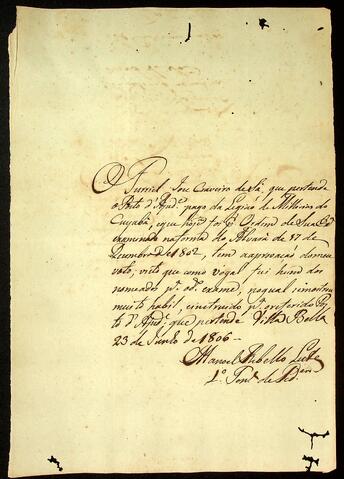 O Furriel Joze Craveiro de Sá, que pertende
o Posto d'Ajud.e pago da Legião de Milicias do
Cuyabá, e que hoje foi p.r Ordem de Sua Ex.
examinado na forma do Alvará de 17 de
Dezembro de 1802, tem a aprovação do meu
voto; visto que como Vogal fui hum dos
nomeados p.a o d.o exame, no qual se mostrou
muito habil, e instruido p.a o referido Pos
to d'Ajud.e que pertende Villa Bella
23 de Junho de 1806
Manoel Rebello Leite
1.o Ten.e de